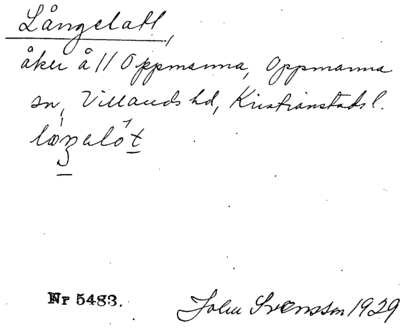 Långelatt,
åker å 11 Oppmanna, Oppmanna
sn, Villands hd, Kristianstads l.
Nr 5483. John Svensson 1929